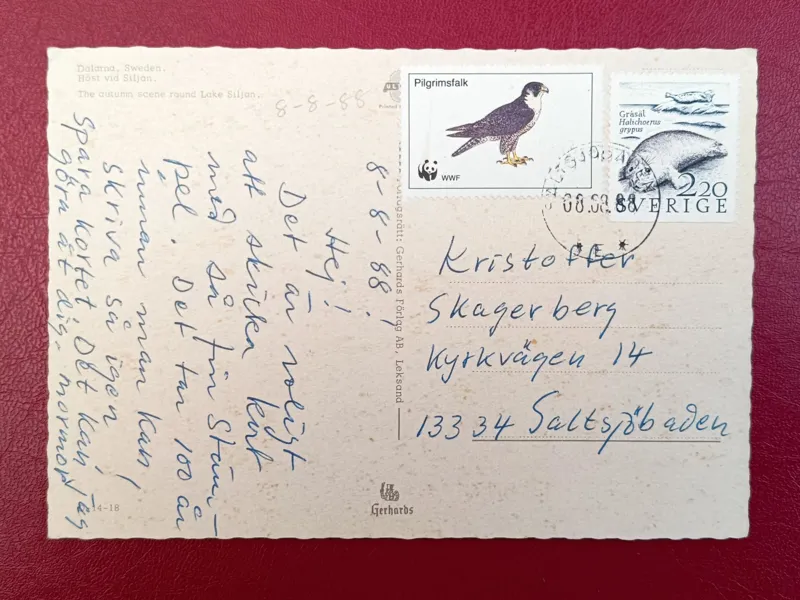 Dalarna, Sweden.
Höst vid Siljan.
The autumn scene round Lake Siljan.
8-8-88
8-8-88!
Hej!
Det är roligt
att skicka kort
med så fin stäm-
pel. Det tar 100 år
innan man kan
skriva så igen!
Spara kortet Det kan jag
göra åt dig. mormor
Pilgrimsfalk
WWF
Gråsäl
Halichoerus
grypus
2.20
SVERIGE
SALTSJÖBADEN
08.08.88
* E *
Kristoffer
Skagerberg
Kyrkvägen 14
13334 Saltsjöbaden
Gerhards Förlag AB, Leksand
Gerhards
4-18